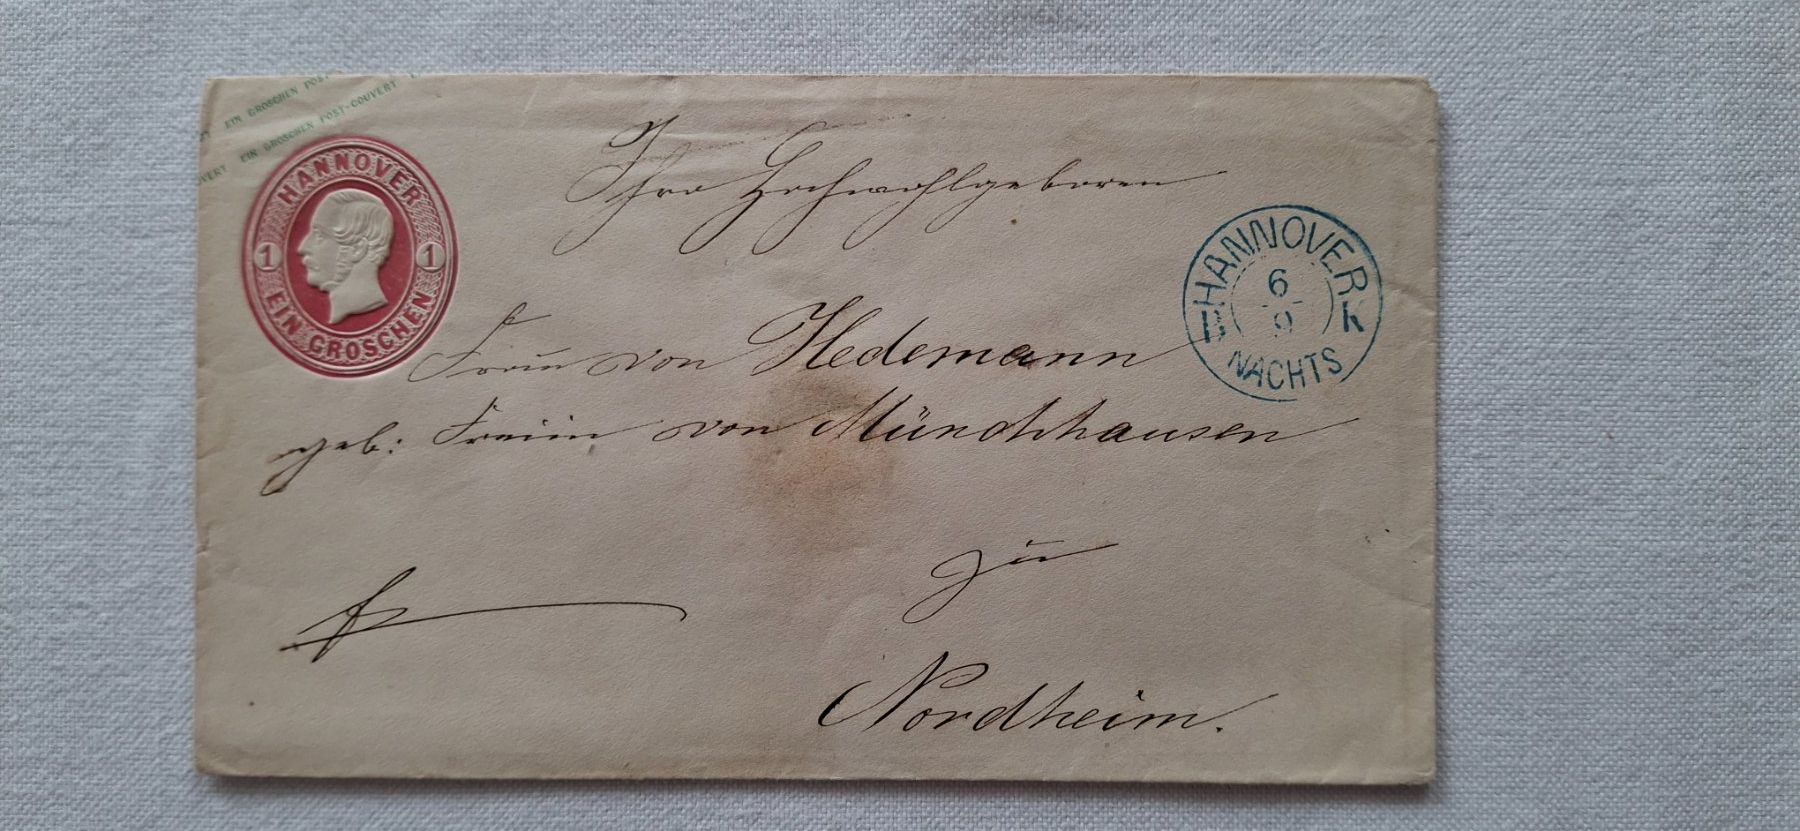 EIN GROSCHEN POST-
EIN GROSCHEN POST-COUVERT
VERT
HANNOVER
1 1
EIN GROSCHEN
Ihro Hochwohlgeboren
HANNOVER
6
9
NACHTS
Frau von Hedemann
geb: Freiin von Münchhausen
zu
Nordheim.